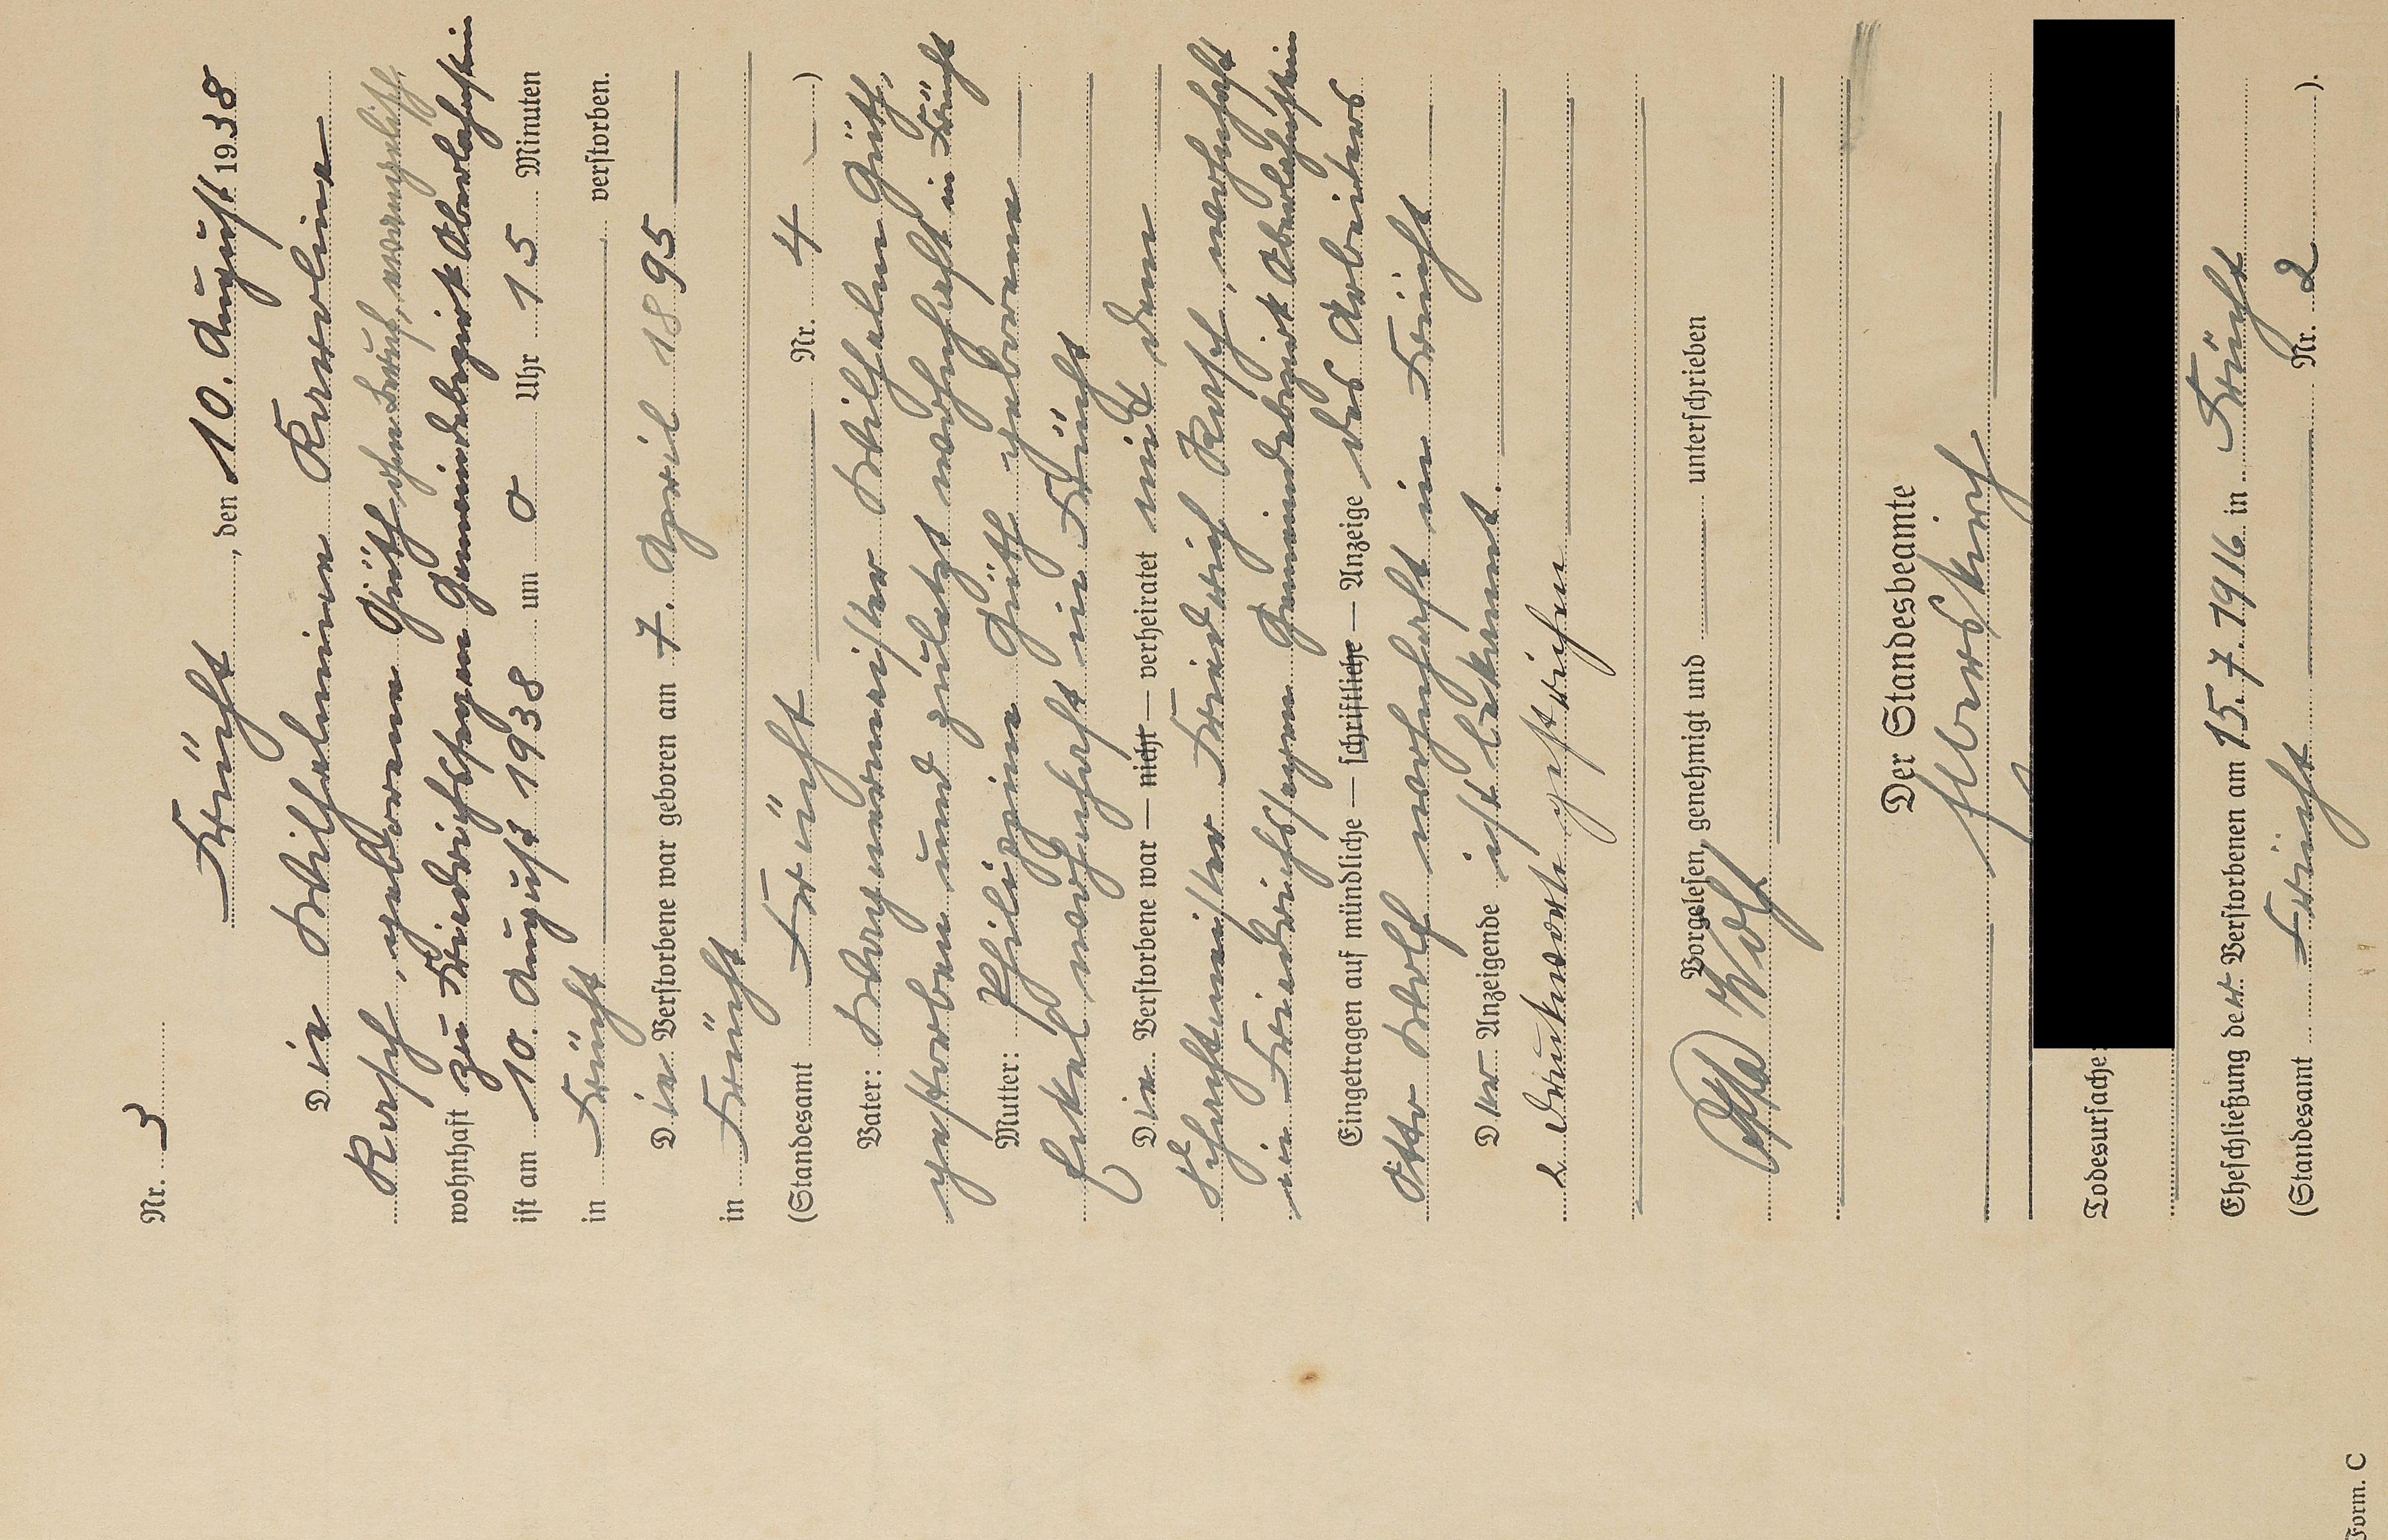 Nr. 3
Frücht, den 10. August 1938
Die Wilhelmine Karoline
Kasch, geborene Güth ohne Beruf, evangelisch
wohnhaft zu Friedrichssegen Gemeindebezirk Oberlahnstein
ist am 10. August 1938 um 0 Uhr 15 Minuten
in Frücht verstorben.
Die Verstorbene war geboren am 7. April 1895
in Frücht
(Standesamt Frücht Nr. 4)
Vater: Wilhelm Güth,
gestorben und zuletzt wohnhaft in Frücht
Mutter: Philippine Güth geborene
wohnhaft in Frücht
Die Verstorbene war — nicht — verheiratet mit dem
Friedrich Kasch, wohnhaft
in Friedrichssegen Gemeindebezirk Oberlahnstein
Eingetragen auf mündliche — schriftliche — Anzeige des Arbeiters
Otto Wolf wohnhaft in Frücht
Der Anzeigende ist bekannt.
2 Druckworte gestrichen
Vorgelesen, genehmigt und unterschrieben
Otto Wolf
Der Standesbeamte
Todesursache:
Eheschließung der Verstorbenen am 15.7.1916 in Frücht
(Standesamt Frücht Nr. 2).
Form. C